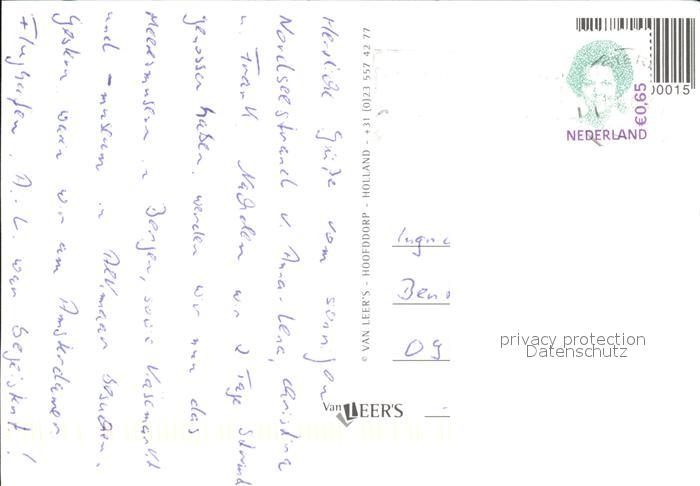 Herzliche Grüße vom sonnigen
Nordseestrand v. Anna-Lena, Christina
u. Frank. Nachdem wir 2 Tage Strand
genossen haben, werden wir nun das
Meeresmuseum in Bergen, sowie Käsemarkt
und -museum in Alkmaar besuchen.
Gestern waren wir am Amsterdamer
Flughafen. A.-L. war begeistert!
© VAN LEER'S - HOOFDDORP - HOLLAND - +31 (0)23 557 42 77
Van LEER'S
00015
€0,65
NEDERLAND
Ben
09
privacy protection
Datenschutz